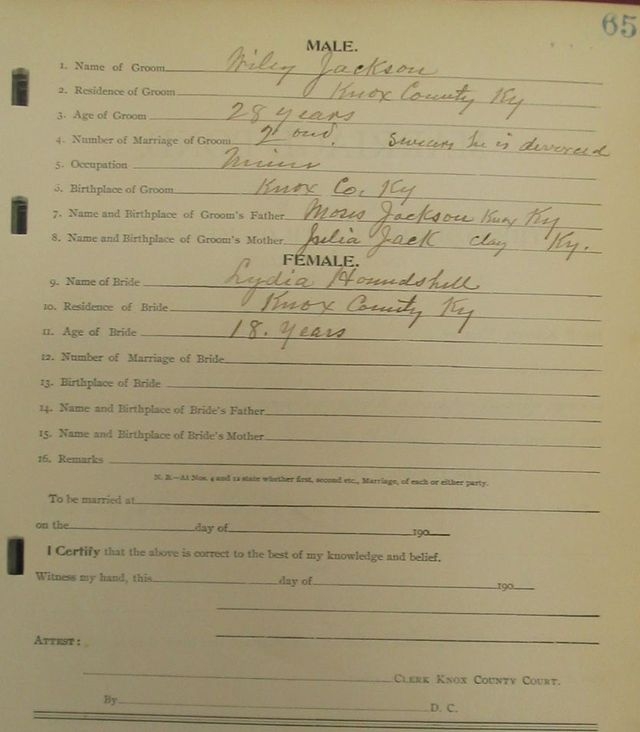 65
MALE.
1. Name of Groom Wiley Jackson
2. Residence of Groom Knox County Ky
3. Age of Groom 28 years
4. Number of Marriage of Groom 2 ond. Swears he is divorced
5. Occupation Miner
6. Birthplace of Groom Knox Co, Ky
7. Name and Birthplace of Groom's Father Moses Jackson Knox Ky
8. Name and Birthplace of Groom's Mother Julia Jack clay Ky.
FEMALE.
9. Name of Bride Lydia Houndshell
10. Residence of Bride Knox County Ky
11. Age of Bride 18. Years
12. Number of Marriage of Bride
13. Birthplace of Bride
14. Name and Birthplace of Bride's Father
15. Name and Birthplace of Bride's Mother
16. Remarks
N. B.—At Nos. 4 and 12 state whether first, second etc., Marriage, of each or either party.
To be married at
on the day of 190
I Certify that the above is correct to the best of my knowledge and belief.
Witness my hand, this day of 190
ATTEST:
CLERK KNOX COUNTY COURT.
By D. C.